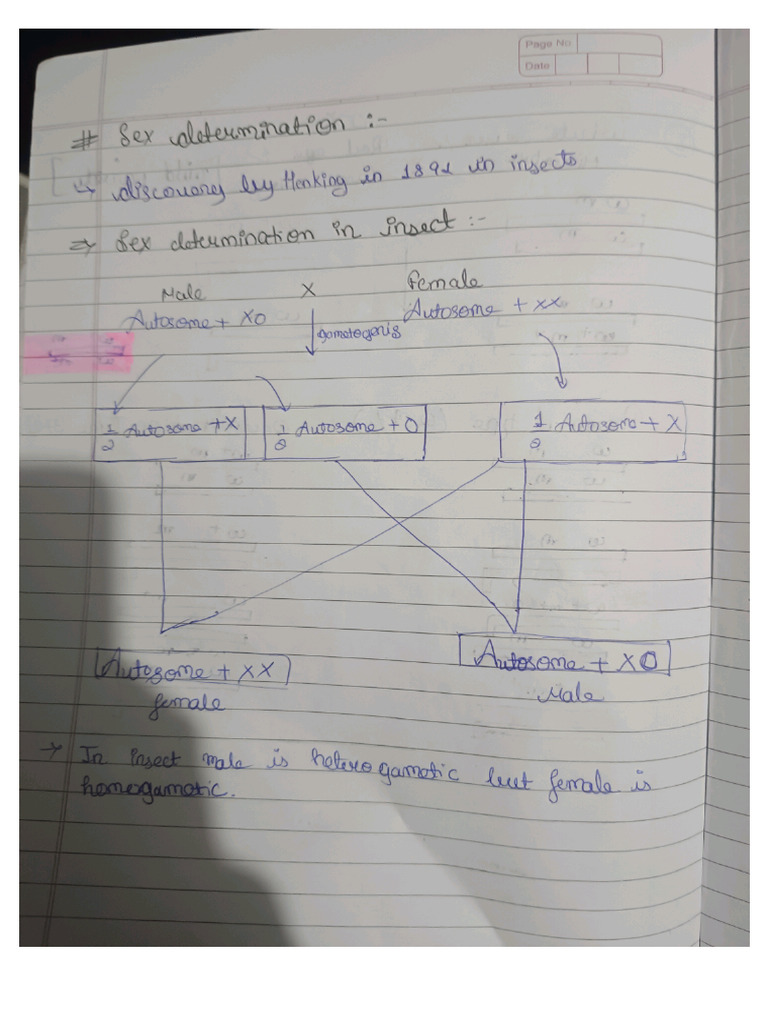 Page No
Date
# Sex determination :-
↳ discovery by Henking in 1891 in insects
⇒ Sex determination in insect :-
Male X Female
Autosome + XO Autosome + XX
gametogenis
1/2 Autosome + X 1/2 Autosome + O 1/2 Autosome + X
Autosome + XX Autosome + XO
female Male
→ In insect male is heterogamotic but female is
homogamotic.